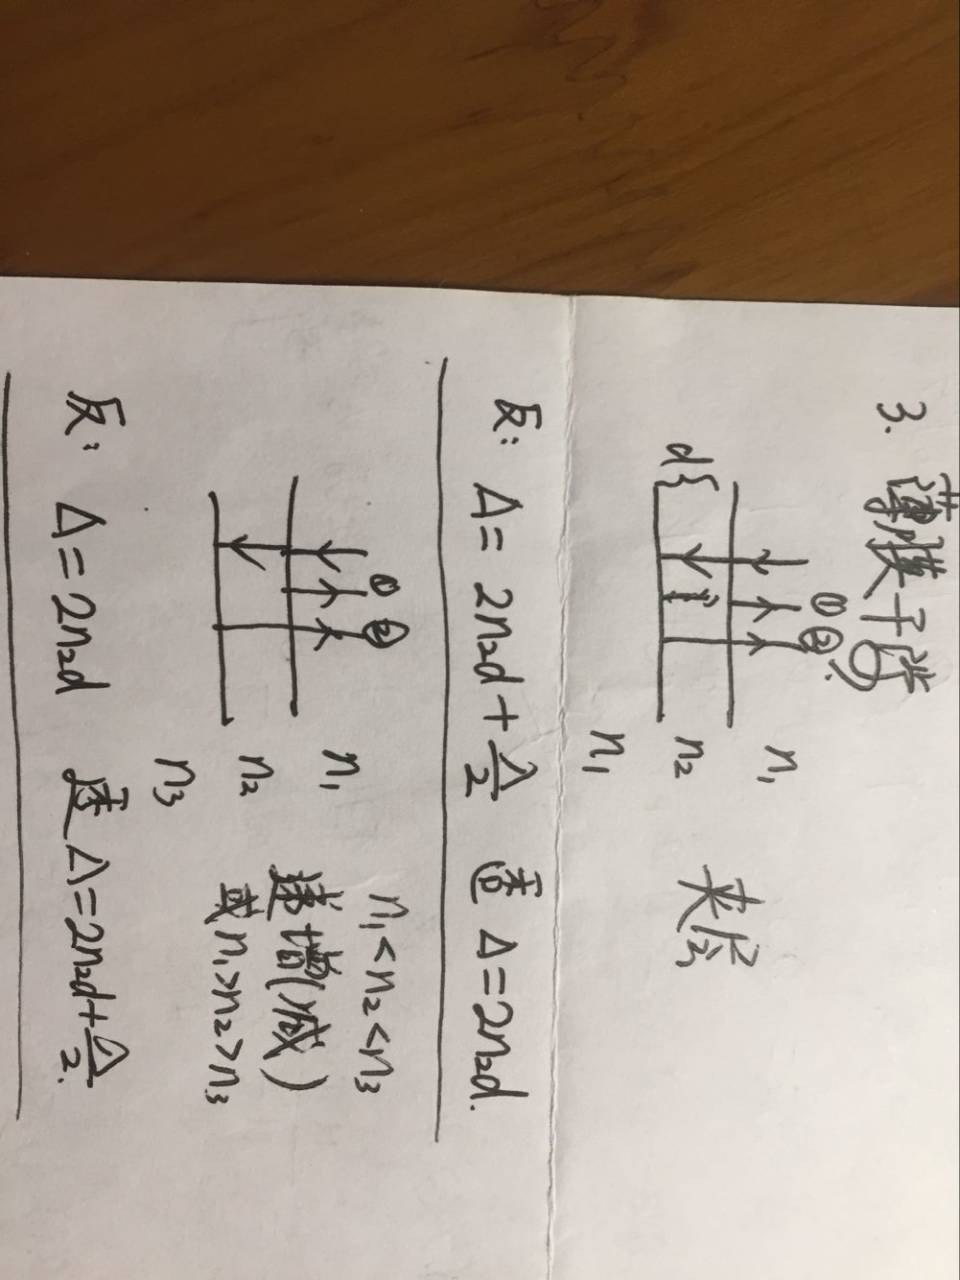 3. 薄膜干涉
① ②
n₁
d{ n₂ 夹层
n₁
反: Δ = 2n₂d + λ/2 透 Δ = 2n₂d.
① ②
n₁ n₁<n₂<n₃
n₂ 递增(减)
n₃ 或n₁>n₂>n₃
反: Δ = 2n₂d 透 Δ=2n₂d+λ/2.